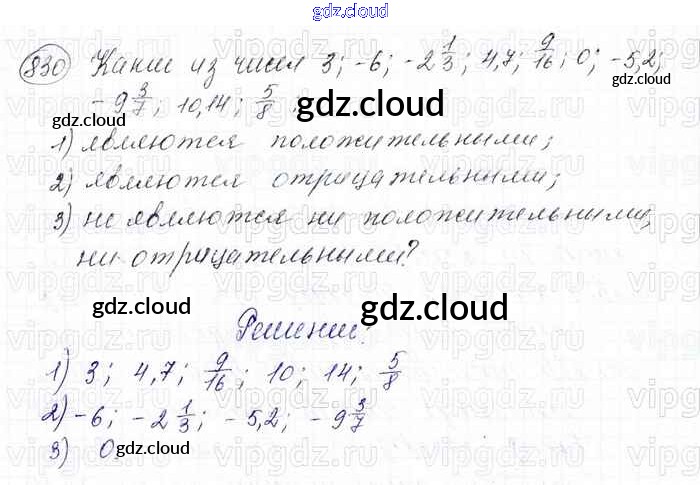 gdz.cloud
830 Какие из чисел 3; -6; -2 1/3; 4,7; 9/16; 0; -5,2;
gdz.cloud
-9 3/7; 10,14; 5/8
gdz.cloud
gdz.cloud
1) являются положительными;
2) являются отрицательными;
3) не являются ни положительными,
ни отрицательными?
gdz.cloud
gdz.cloud
Решение:
1) 3; 4,7; 9/16; 10; 14; 5/8
2) -6; -2 1/3; -5,2; -9 3/7
3) 0
gdz.cloud